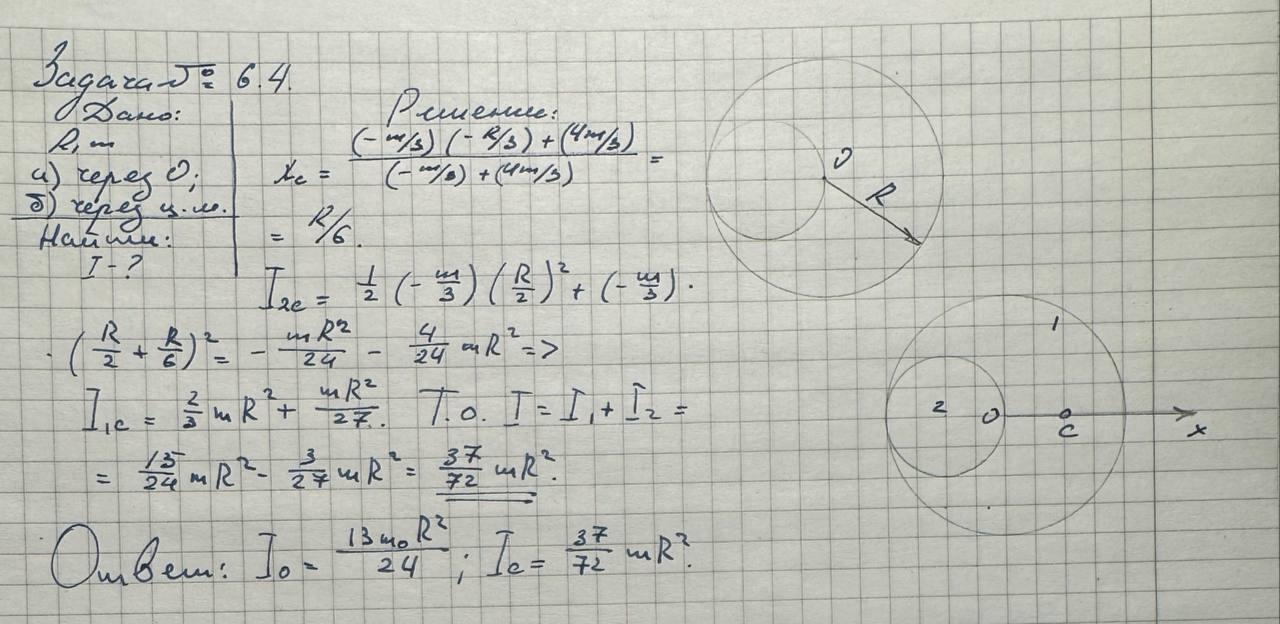 Задача № 6.4.
Дано:
R, m
а) через O;
б) через ц.м.
Найти:
I - ?
Решение:
x_c = ((-m/3)(-R/3) + (4m/3)) / ((-m/3) + (4m/3)) =
= R/6.
I_2c = 1/2 (-m/3) (R/2)² + (-m/3) ·
· (R/2 + R/6)² = - mR²/24 - 4/24 mR² =>
I_1c = 2/3 mR² + mR²/27. Т.о. I = I_1 + I_2 =
= 13/24 mR² - 3/27 mR² = 37/72 mR².
Ответ: I_0 = 13m_0R²/24 ; I_c = 37/72 mR².
O
R
1
2
O
C
x